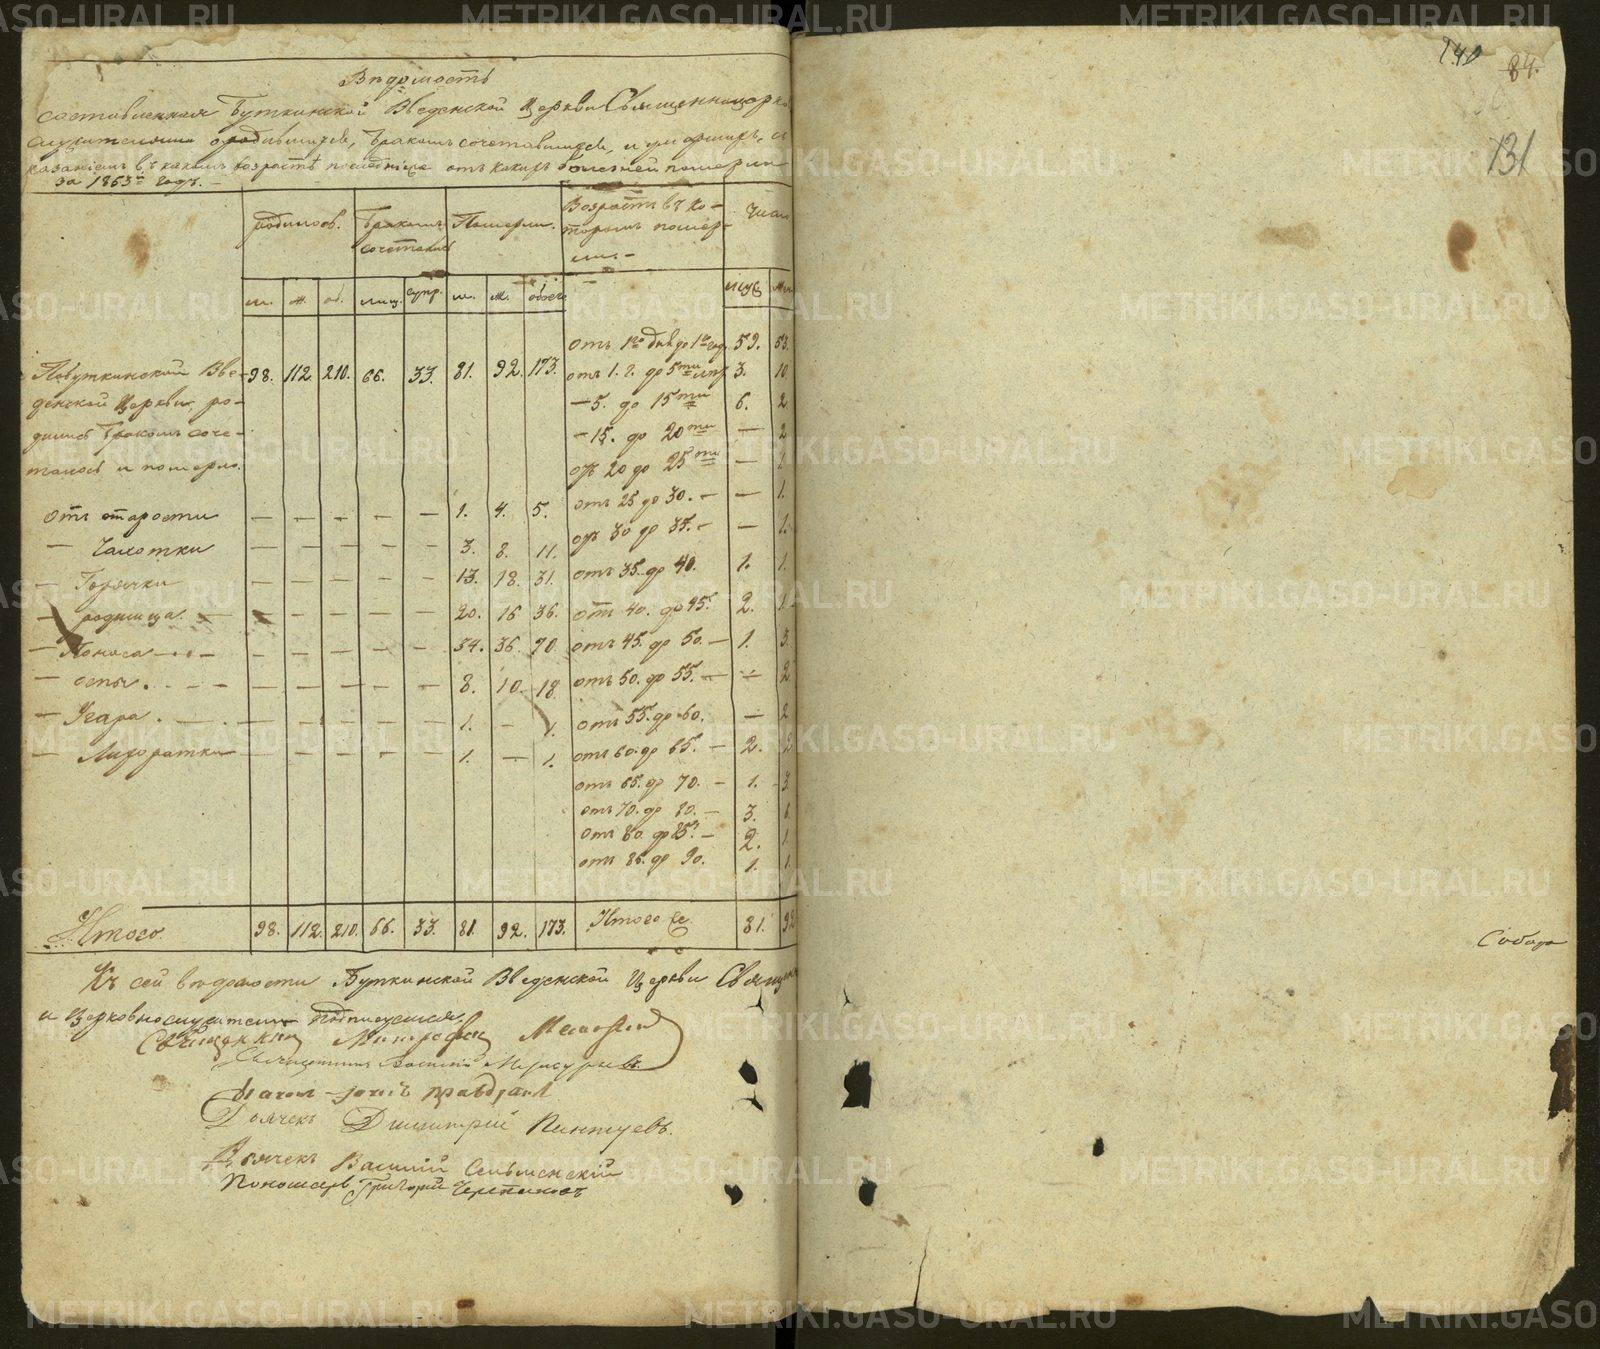 Вѣдомость
составленная Буткинской Введенской Церкви Священноцерко
служителями о родившихся, бракомъ сочетавшихся, и умершихъ, съ
казаніемъ въ какомъ возрастѣ последніе и отъ какихъ болезней померли
за 1853й годъ.
родилось. Бракомъ сочеталис Померли. Возрастъ въ ко-
торомъ помер-
ли. Число
м. ж. об. лиц. супр. м. ж. обоего муж жен
По Буткинской Вве- 98. 112 210. 66. 33. 81. 92. 173.
денской Церкви, ро-
дилось бракомъ соче-
талось и померло.
отъ старости — — — — — 1. 4. 5.
— Чахотки — — — — — 3. 8. 11.
— Горячки — — — — — 13. 18. 31.
— родимца — — — — — 20. 16 36.
— Поноса — — — — — 34. 36. 70
— оспы — — — — — 8. 10. 18
— Угара — — — — — 1. — 1.
— Лихоратки — — — — — 1. — 1.
отъ 1го дня до 1го год. 59. 53.
отъ 1. г. до 5ти лѣтъ 3. 10
— 5. до 15ти 6. 2
— 15. до 20ти — 2
отъ 20 до 25ти —
отъ 25 до 30. — — 1.
отъ 30 до 35. — — 1.
отъ 35. до 40. 1. 1.
отъ 40. до 45. 2. 1
отъ 45. до 50. — 1. 3.
отъ 50. до 55. — — 2
отъ 55. до 60. — 2
отъ 60. до 65. — 2. 2
отъ 65. до 70. — 1. 3.
отъ 70. до 80. — 3. 6.
отъ 80. до 85. — 2. 1.
отъ 85. до 90. 1. 1.
Итого 98. 112. 210. 66. 33. 81. 92. 173. Итого 81. 92
Къ сей вѣдомости Буткинской Введенской Церкви Священно
и Церковнослужители подписуемся,
Священникъ
Священникъ Василій
Діаконъ
Дьячекъ Димитрій Пантуевъ.
Дьячекъ Василій
Пономарь Григорій Черепановъ
140
84.
131
METRIKI.GASO-URAL.RU